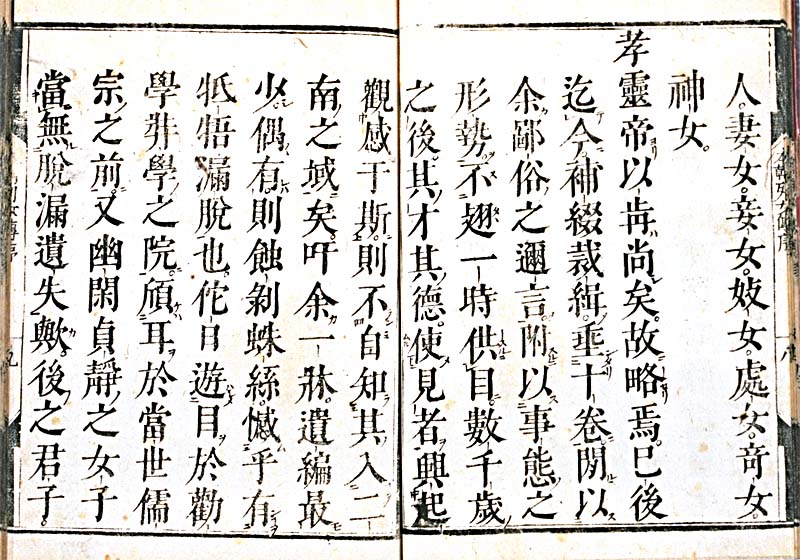 人妻女。妾女。妓女。處女。奇女。
神女。
孝靈帝以歬尚矣。故略焉。已後
迄今補綴裁緝垂十卷間以
余鄙俗之邇言附以事態之
形勢不翅一時供目數千歲
之後。其才其德。使見者興起
觀感于斯。則不自知其入二
南之域矣。吁余一牀遺編最
少。偶有。則蝕剝蛛絲。憾乎有
牴牾漏脫也。佗日遊目於勸
學弉學之院。傾耳於當世儒
宗之前。又幽閑貞靜之女子
當無脫漏遺失歟。後之君子。
八
九